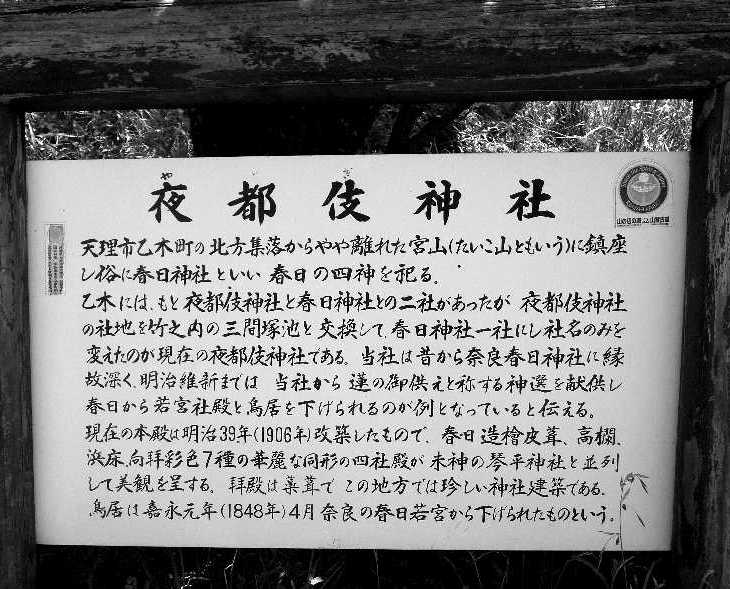 夜都伎神社
や ぎ
天理市乙木町の北方集落からやや離れた宮山(たいこ山ともいう)に鎮座
し俗に春日神社といい 春日の四神を祀る。
乙木には、もと夜都伎神社と春日神社との二社があったが 夜都伎神社
の社地を竹之内の三間塚池と交換して、春日神社一社にし社名のみを
変えたのが現在の夜都伎神社である。当社は昔から奈良春日神社に縁
故深く、明治維新までは 当社から 蓮の御供えと称する神選を献供し
春日から若宮社殿と鳥居を下げられるのが例となっていると伝える。
現在の本殿は明治39年(1906年)改築したもので、春日造檜皮葺、高欄、
浜床、向拝彩色7種の華麗な同形の四社殿が 末神の琴平神社と並列
して美観を呈する。拝殿は藁葺で この地方では珍しい神社建築である。
鳥居は嘉永元年(1848年)4月 奈良の春日若宮から下げられたものという。